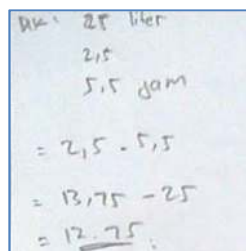 DK: 25 liter
2,5
5,5 jam
= 2,5 . 5,5
= 13,75 - 25
= 12.75